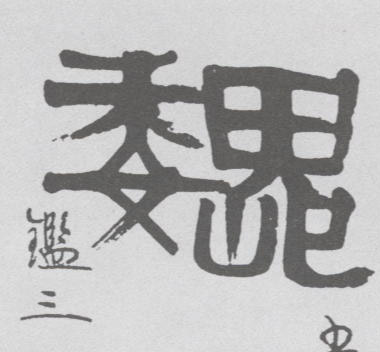 魏
鑑三